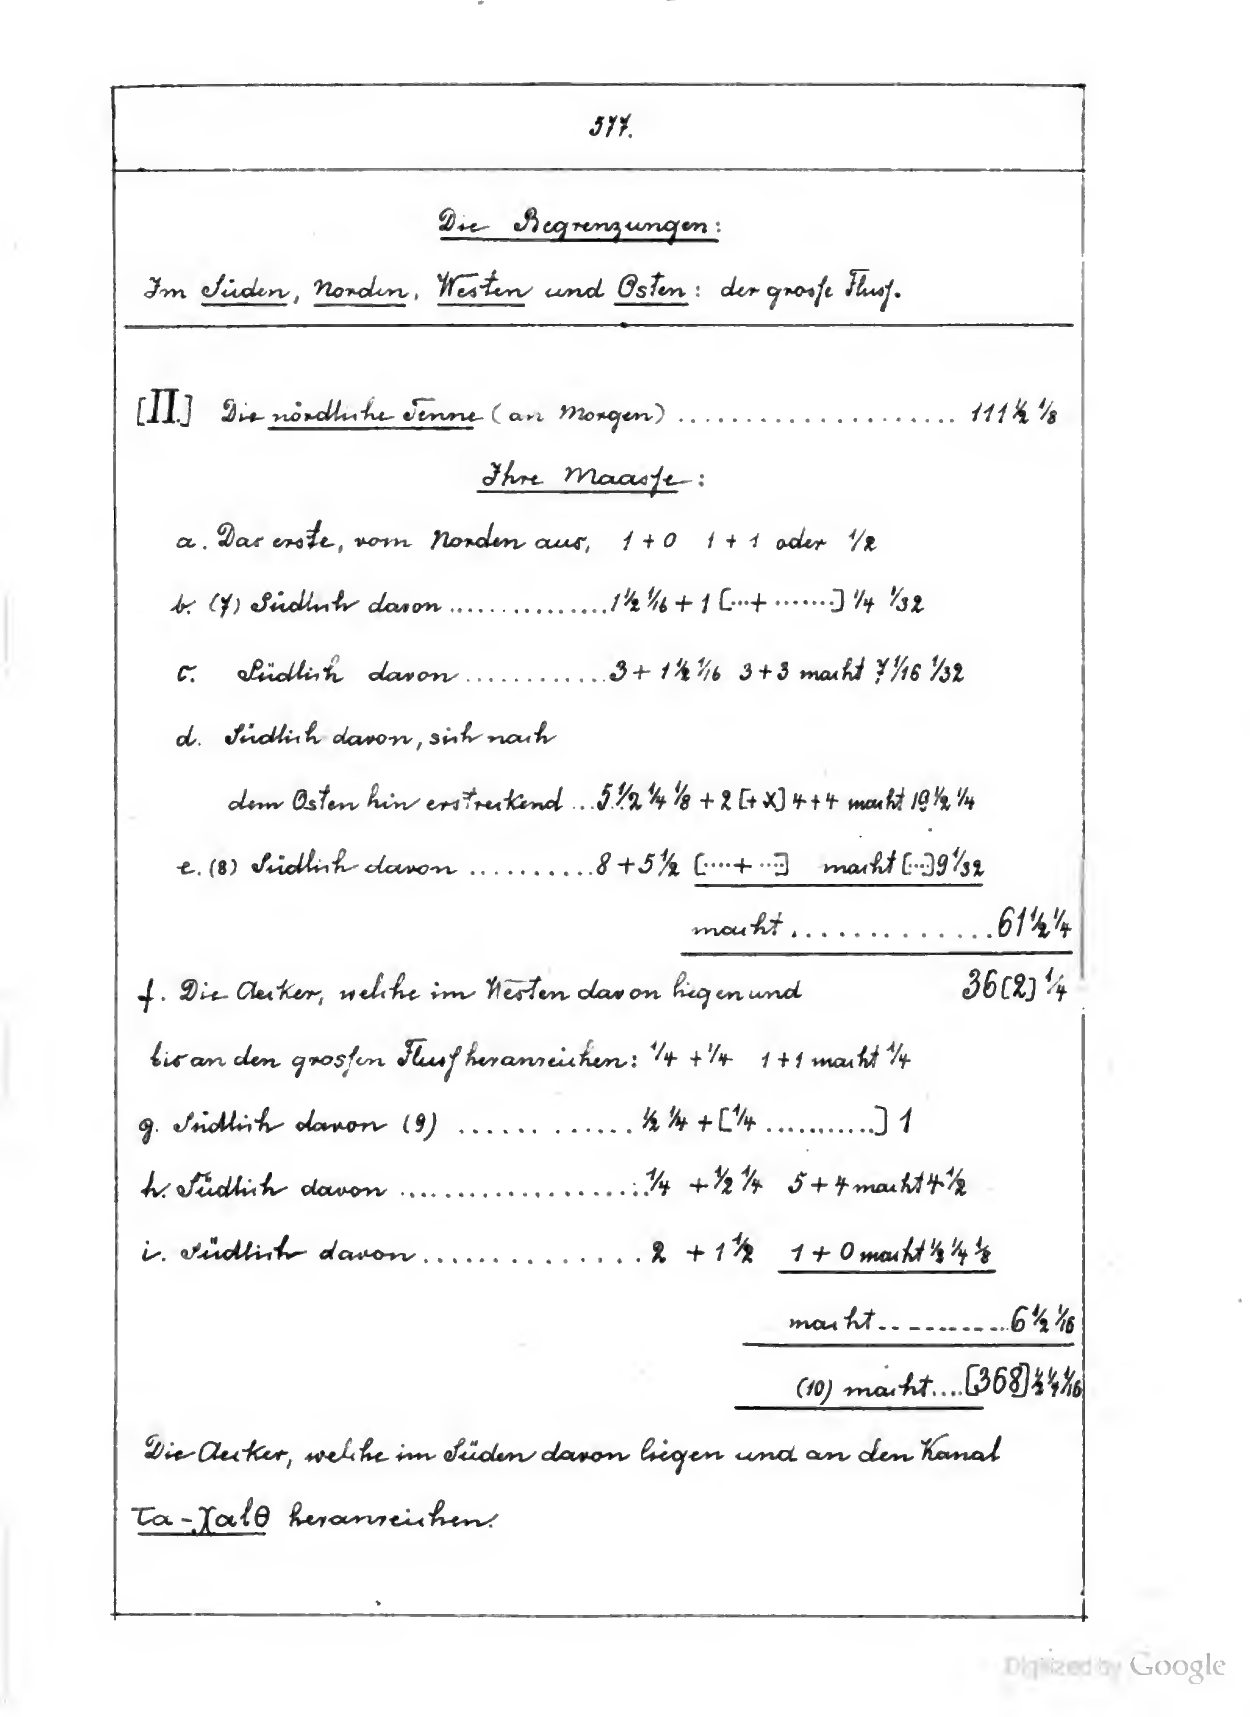 577.
Die Begrenzungen:
Im Süden, Norden, Westen und Osten: der grosse Fluss.
[II.] Die nördliche Tenne (an Morgen) .................... 111 ½ 1/8
Ihre Maasse:
a. Das erste, vom Norden aus, 1 + 0 1 + 1 oder 1/2
b. (7) Südlich davon ............... 1 ½ 1/16 + 1 [...+ ........] 1/4 1/32
c. Südlich davon ............ 3 + 1 ½ 1/16 3 + 3 macht 7 1/16 1/32
d. Südlich davon, sich nach
dem Osten hin erstreckend ... 5 1/2 1/4 1/8 + 2 [+ X] 4 + 4 macht 19 ½ 1/4
e. (8) Südlich davon .......... 8 + 5 ½ [....+ ...] macht [...] 9 1/32
macht ............. 61 ½ 1/4
f. Die Aecker, welche im Westen davon liegen und 36[2] 1/4
bis an den grossen Fluss heranreichen: 1/4 + 1/4 1 + 1 macht 1/4
g. Südlich davon (9) ............. ½ 1/4 + [1/4 ...........] 1
h. Südlich davon .................... 1/4 + ½ 1/4 5 + 4 macht 4 ½
i. Südlich davon .............. 2 + 1 ½ 1 + 0 macht ½ 1/4 1/8
macht ........... 6 ½ 1/16
(10) macht .... [368] ½ 1/4 1/16
Die Aecker, welche im Süden davon liegen und an den Kanal
Ta-χalθ heranreichen.
Digitized by Google